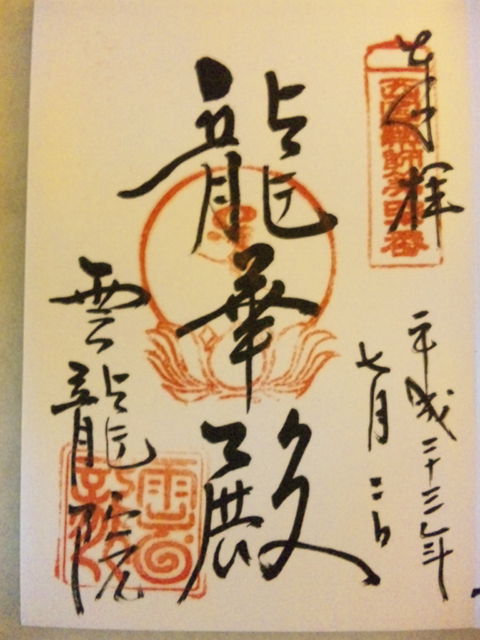 奉拝
平成二十三年
七月二日
龍華殿
雲龍院